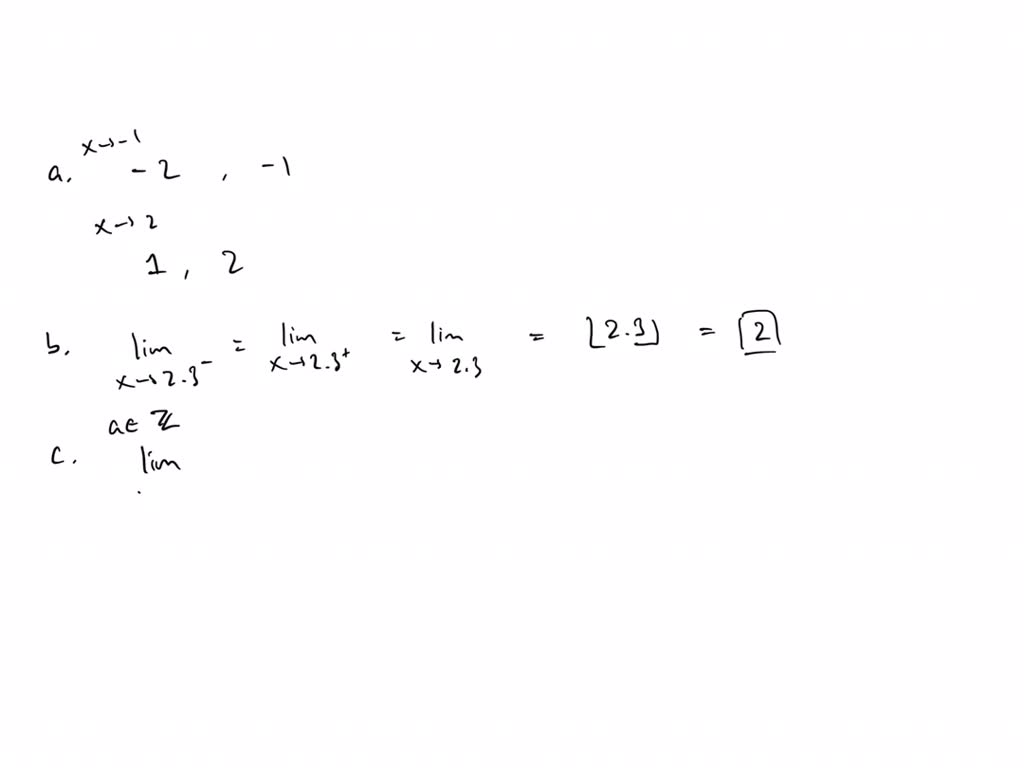 x→-1
a. -2 , -1
x→2
1 , 2
b. lim x→2.3⁻ = lim x→2.3⁺ = lim x→2.3 = ⌊2.3⌋ = 2
a∈ℤ
c. lim